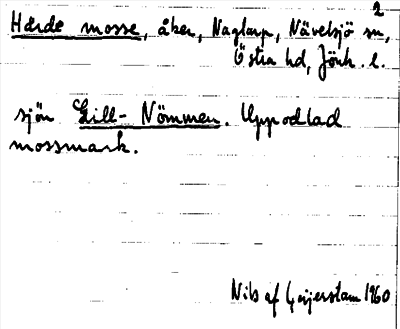 2
Herde mosse, åker, Naglarp, Nävelsjö sn,
Östra hd, Jönk. l.
sjön Lill-Nömmen. Uppodlad
mossmark.
Nils af Geijerstam 1960